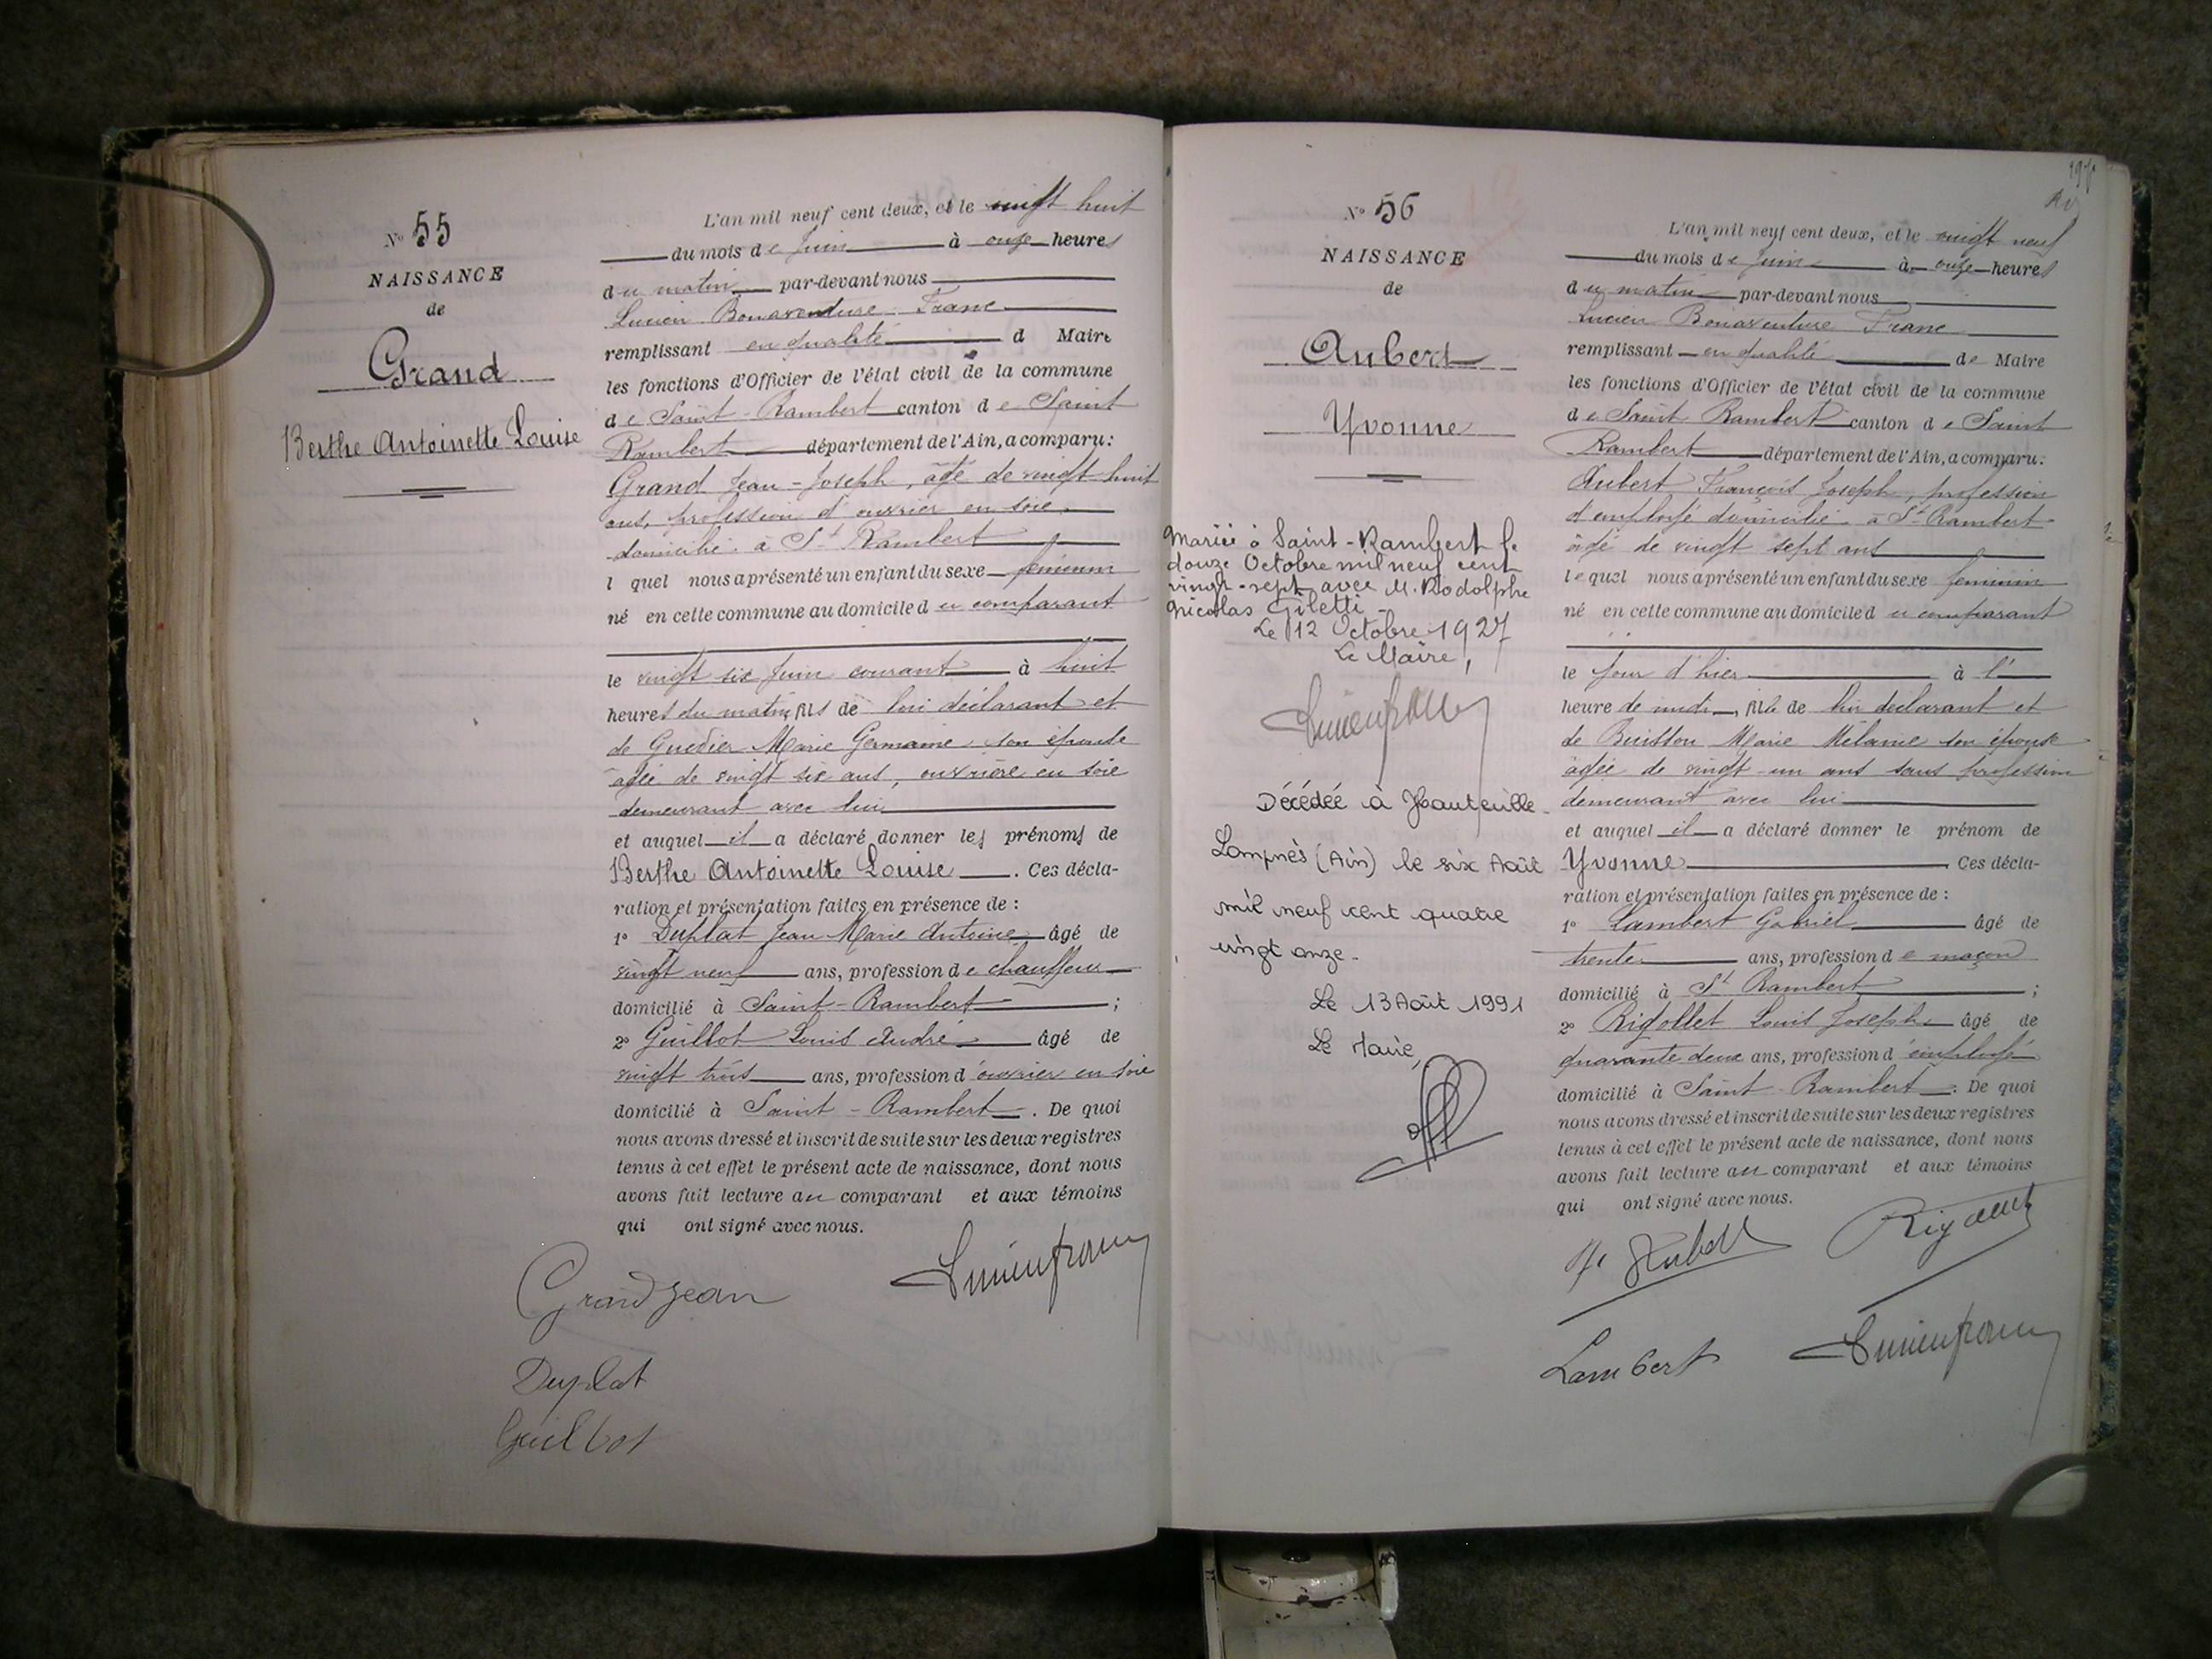 N° 55
NAISSANCE
de
Grand
Berthe Antoinette Louise
L'an mil neuf cent deux, et le vingt huit
du mois de Juin à onze heures
du matin par-devant nous
Lucien Bonaventure Franc
remplissant en qualité d Maire
les fonctions d'Officier de l'état civil de la commune
de Saint-Rambert canton de Saint
Rambert département de l'Ain, a comparu :
Grand Jean-Joseph, âgé de vingt huit
ans, profession d'ouvrier en soie,
domicilié à St Rambert
l quel nous a présenté un enfant du sexe féminin
né en cette commune au domicile du comparant
le vingt six Juin courant à huit
heures du matin, fils de lui déclarant et
de Guedier Marie Germaine son épouse
âgée de vingt six ans, ouvrière en soie
demeurant avec lui
et auquel il a déclaré donner les prénoms de
Berthe Antoinette Louise. Ces décla-
ration et présentation faites en présence de :
1° Duplat Jean Marie Antoine âgé de
vingt neuf ans, profession de chauffeur
domicilié à Saint-Rambert ;
2° Guillot Louis André âgé de
vingt trois ans, profession d'ouvrier en soie
domicilié à Saint-Rambert. De quoi
nous avons dressé et inscrit de suite sur les deux registres
tenus à cet effet le présent acte de naissance, dont nous
avons fait lecture au comparant et aux témoins
qui ont signé avec nous.
Grand Jean
Lucien franc
Duplat
Guillot
N° 56
NAISSANCE
de
Aubert
Yvonne
Mariée à Saint-Rambert le
douze Octobre mil neuf cent
vingt-sept avec M. Rodolphe
Nicolas Giletti -
Le 12 Octobre 1927
Le Maire,
Lucien franc
Décédée à Hauteville-
Lompnès (Ain) le six Août
mil neuf cent quatre
vingt onze.
Le 13 Août 1991
Le Maire,
L'an mil neuf cent deux, et le vingt neuf
du mois de Juin à onze heures
du matin par-devant nous
Lucien Bonaventure Franc
remplissant en qualité de Maire
les fonctions d'Officier de l'état civil de la commune
de Saint Rambert canton de Saint
Rambert département de l'Ain, a comparu :
Aubert François Joseph, profession
d'employé domicilié à St Rambert
âgé de vingt sept ans
lequel nous a présenté un enfant du sexe féminin
né en cette commune au domicile du comparant
le jour d'hier à l'
heure de midi, fille de lui déclarant et
de Buisson Marie Mélanie son épouse
âgée de vingt-un ans sans profession
demeurant avec lui
et auquel il a déclaré donner le prénom de
Yvonne Ces décla-
ration et présentation faites en présence de :
1° Lambert Gabriel âgé de
trente ans, profession de maçon
domicilié à St Rambert ;
2° Rigollet Louis Joseph âgé de
quarante deux ans, profession d'employé
domicilié à Saint-Rambert : De quoi
nous avons dressé et inscrit de suite sur les deux registres
tenus à cet effet le présent acte de naissance, dont nous
avons fait lecture au comparant et aux témoins
qui ont signé avec nous.
Aubert
Lambert
Lucien franc